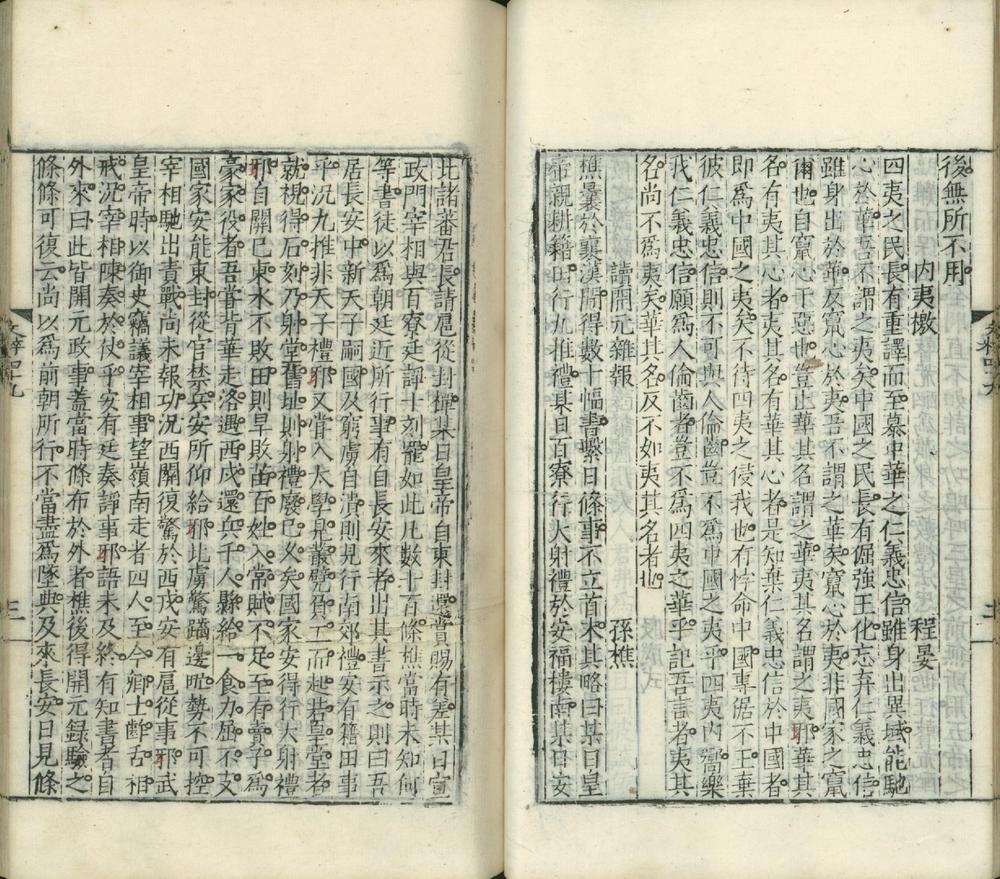 後無所不用
内夷檄 程晏
四夷之民長有重譯而至慕中華之仁義忠信雖身出異域能馳
心於華吾不謂之夷矣中國之民長有倔強王化忘弃仁義忠信
雖身出於華反竄心於夷吾不謂之華矣竄心於夷非國家之竄
爾也自竄心于惡也豈止華其名謂之華夷其名謂之夷邪華其
名有夷其心者夷其名有華其心者是知棄仁義忠信於中國者
即爲中國之夷矣不待四夷之侵我也有悖命中國專倨不王棄
彼仁義忠信則不可與人倫齒豈不爲中國之夷乎四夷内嚮樂
我仁義忠信願爲人倫齒者豈不爲四夷之華乎記吾言者夷其
名尚不爲夷矣華其名反不如夷其名者也
讀開元雜報 孫樵
樵曩於襄漢間得數十幅書繫日條事不立首末其略曰某日皇
帝親耕籍田行九推禮某日百寮行大射禮於安福樓南某日安
北諸蕃君長請扈從封禪某日皇帝自東封還賞賜有差某日宣
政門宰相與百寮廷諍十刻罷如此凡數十百條樵當時未知何
等書徒以爲朝廷近所行事有自長安來者出其書示之則曰吾
居長安中新天子嗣國及窮虜自潰則見行南郊禮安有籍田事
乎況九推非天子禮邪又嘗入太學見叢甓負土而起若皇堂者
就視得石刻乃射堂舊址則射禮廢已久矣國家安得行大射禮
邪自關已東水不敗田則旱敗苗百姓入常賦不足至有賣子爲
豪家役者吾嘗背華走洛遇西戍還兵千人縣給一食力屈不支
國家安能東封從官禁兵安所仰給邪北虜驚齧邊甿勢不可控
宰相馳出責戰尚未報功況西關復驚於西戎安有扈從事邪武
皇帝時以御史竊議宰相事望嶺南走者四人至今卿士齰舌相
戒況宰相陳奏於仗乎安有廷奏諍事邪語未及終有知書者自
外來曰此皆開元政事蓋當時條布於外者樵後得開元錄驗之
條條可復云尚以爲前朝所行不當盡爲墜典及來長安日見條